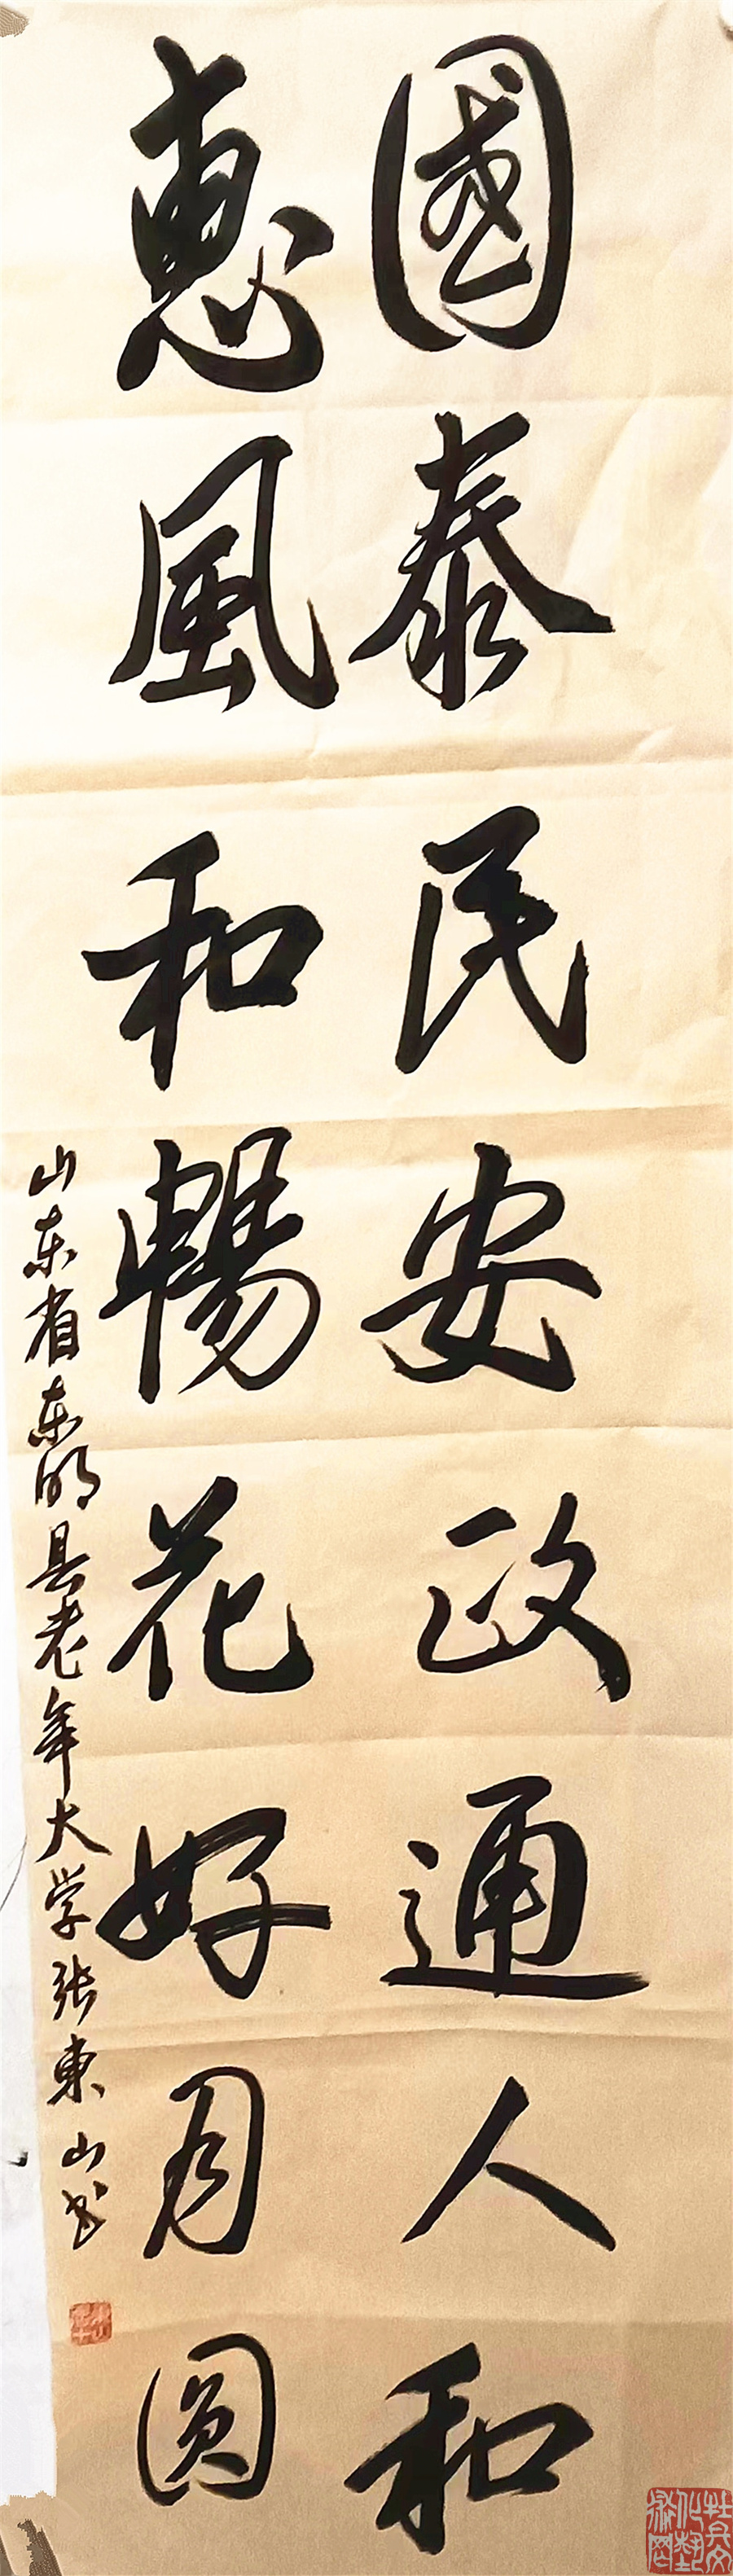 國泰民安政通人和
惠風和暢花好月圓
山东省东明县老年大学张東山书